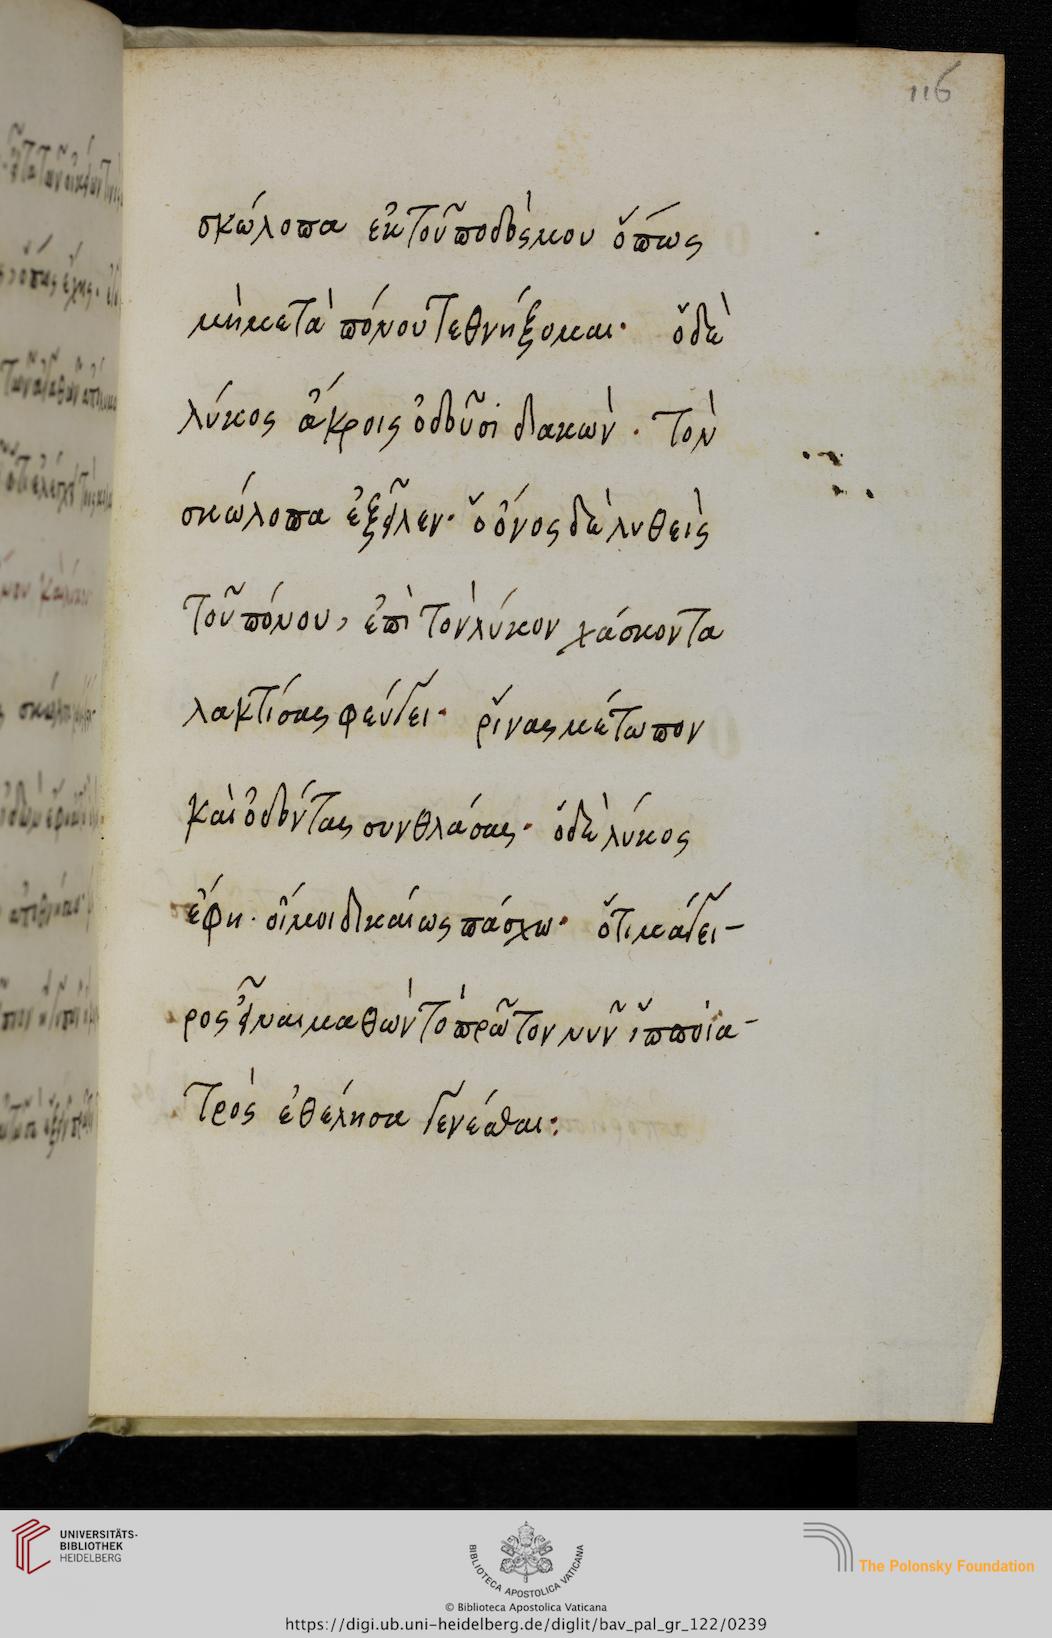 116
σκώλοπα ἐκ τοῦ ποδός μου ὅπως
μὴ μετὰ πόνου τεθνήξομαι· ὁ δὲ
λύκος ἄκροις ὀδοῦσι δακὼν· τὸν
σκώλοπα ἐξεῖλεν· ὁ ὄνος δὲ λυθεὶς
τοῦ πόνου, ἐπὶ τὸν λύκον χάσκοντα
λακτίσας φεύγει· ῥῖνας μέτωπον
καὶ ὀδόντας συνθλάσας· ὁ δὲ λύκος
ἔφη· οἴμοι δικαίως πάσχω· ὅτι μάγει-
ρος εἶναι μαθὼν τὸ πρῶτον νυν ἱπποία-
τρὸς ἐθέλησα γενέσθαι:
UNIVERSITÄTS-
BIBLIOTHEK
HEIDELBERG
BIBLIOTECA APOSTOLICA VATICANA
The Polonsky Foundation
© Biblioteca Apostolica Vaticana
https://digi.ub.uni-heidelberg.de/diglit/bav_pal_gr_122/0239